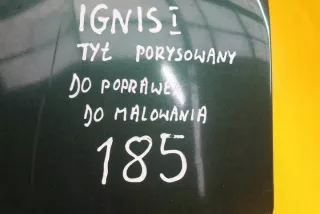 IGNIS I
TYŁ PORYSOWANY
DO POPRAWEK
DO MALOWANIA
185